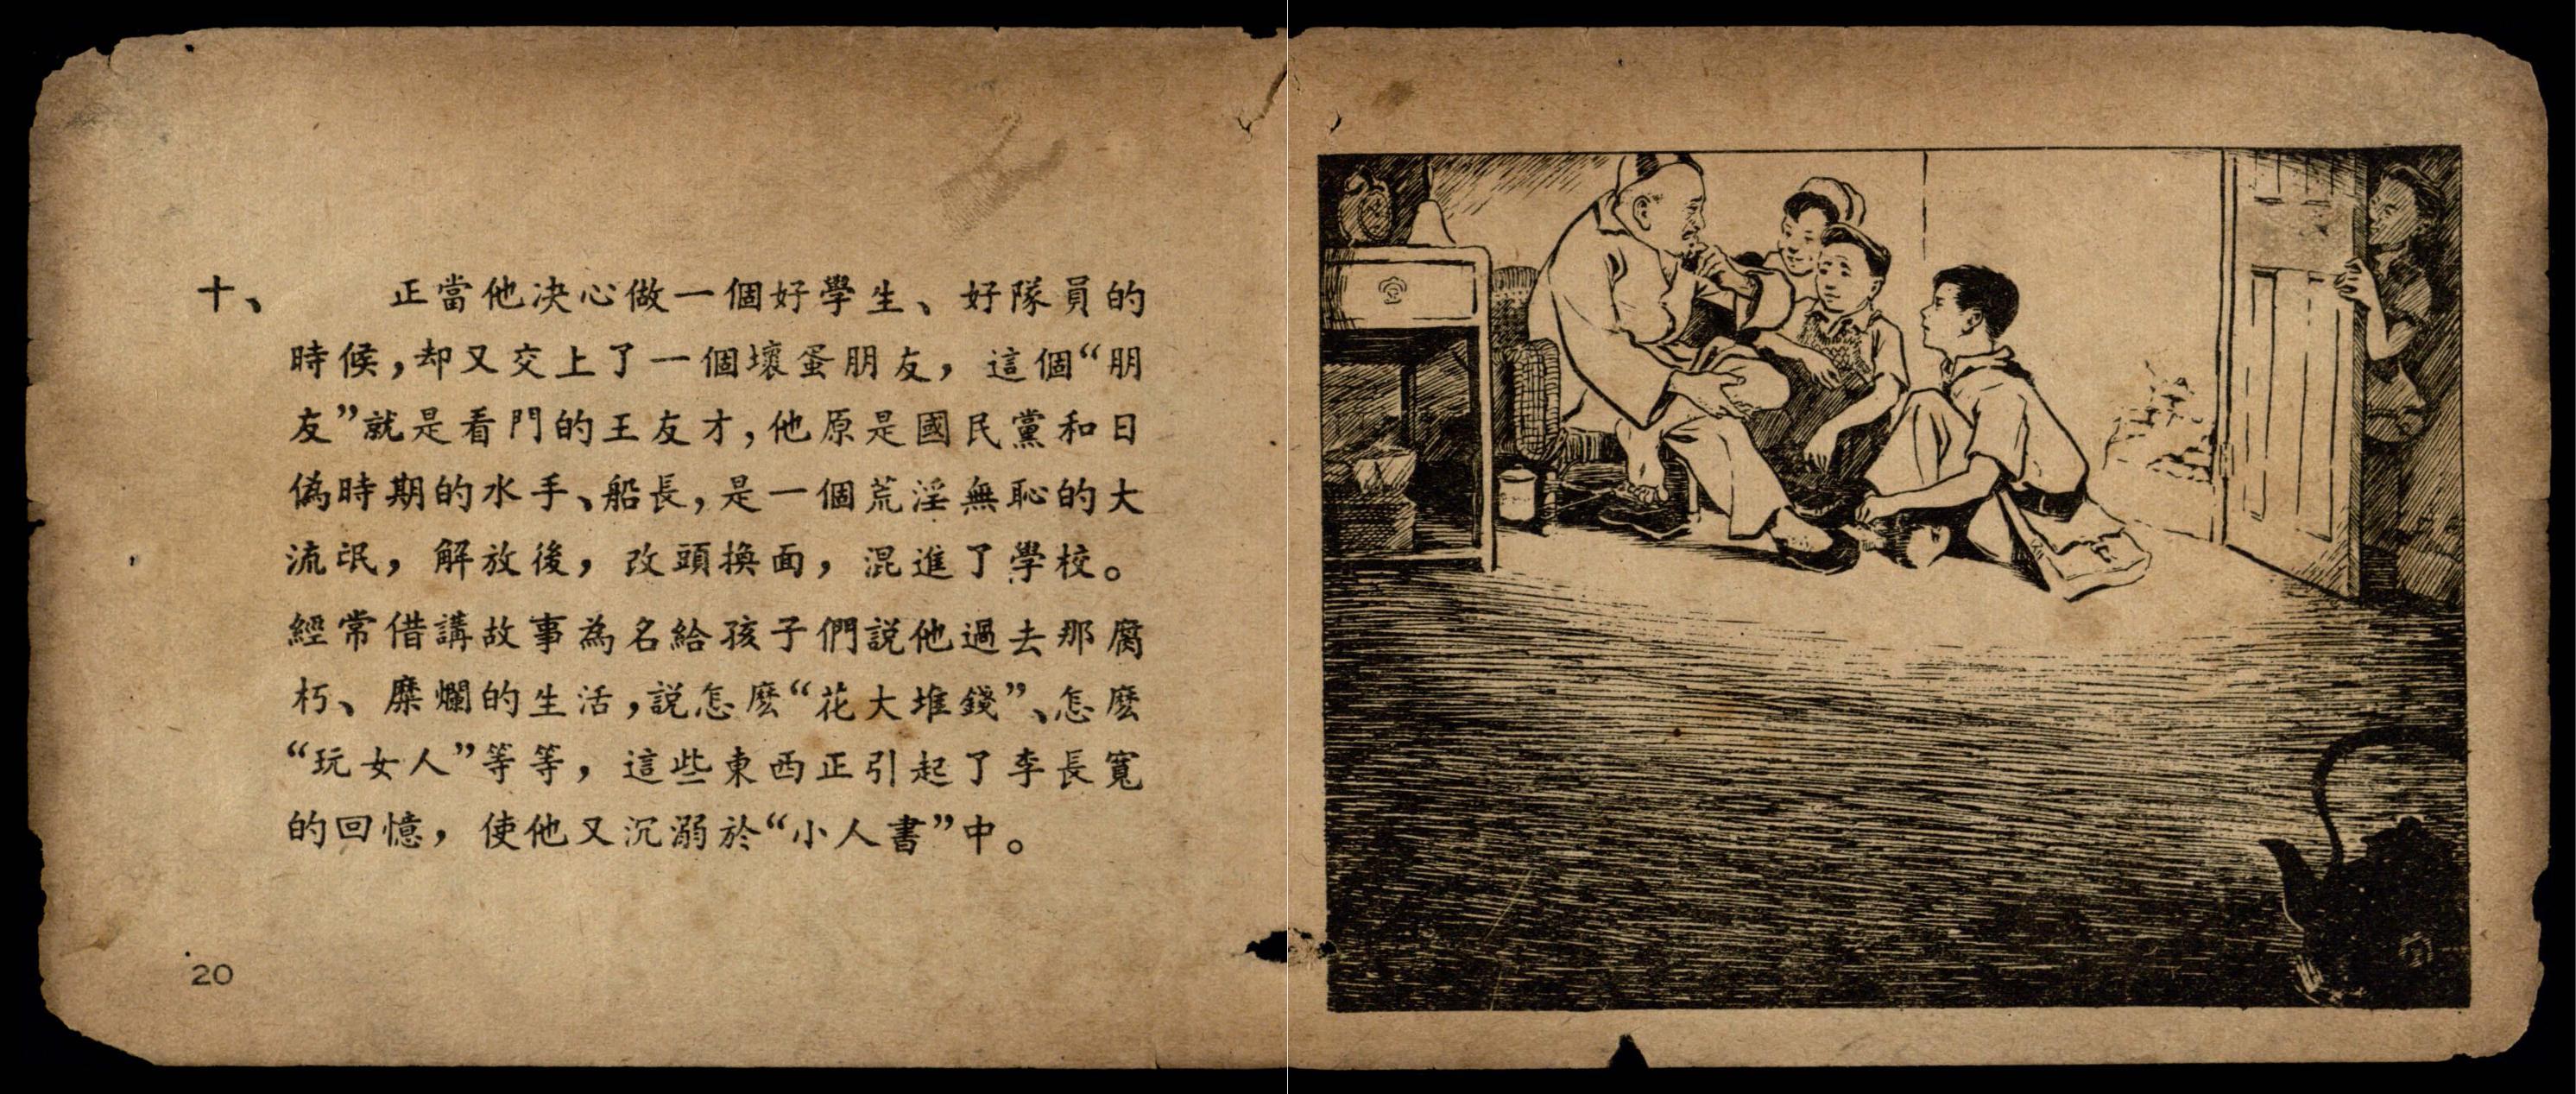 十、 正當他决心做一個好學生、好隊員的
時候，却又交上了一個壞蛋朋友，這個“朋
友”就是看門的王友才，他原是國民黨和日
偽時期的水手、船長，是一個荒淫無恥的大
流氓，解放後，改頭換面，混進了學校。
經常借講故事為名給孩子們説他過去那腐
朽、糜爛的生活，説怎麽“花大堆錢”、怎麽
“玩女人”等等，這些東西正引起了李長寬
的回憶，使他又沉溺於“小人書”中。
20